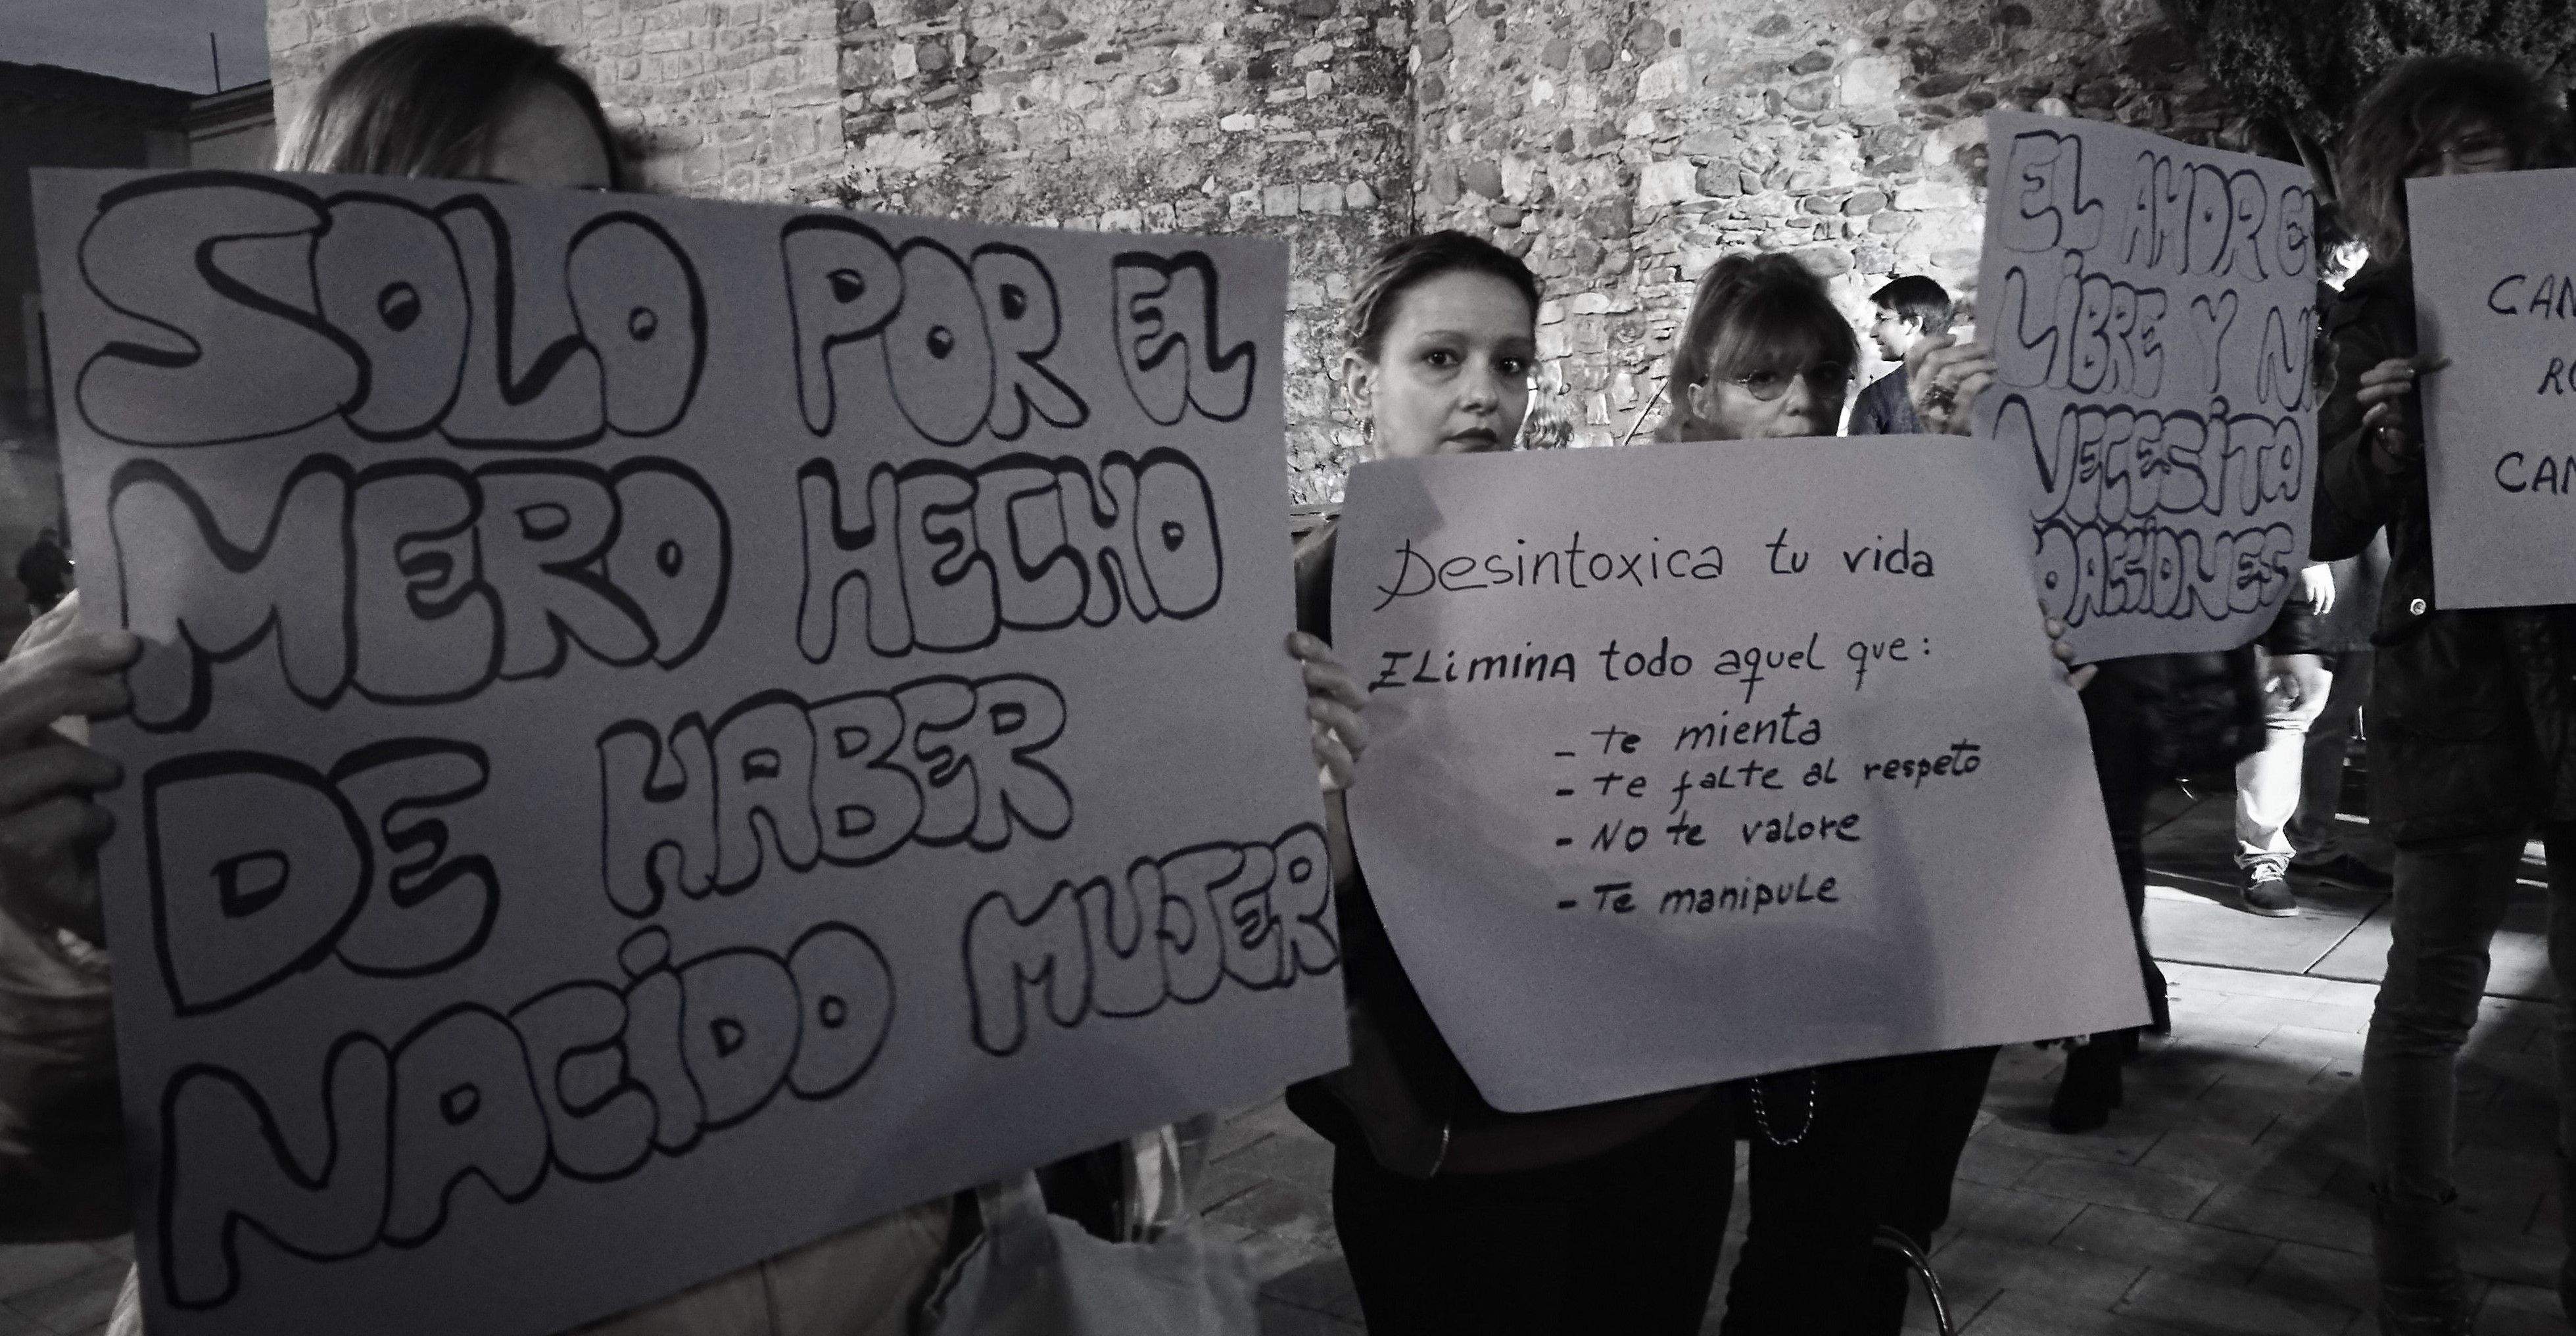 SOLO POR EL
MERO HECHO
DE HABER
NACIDO MUJER
Desintoxica tu vida
ELiminA todo aquel que:
- Te mienta
- Te falte al respeto
- No te valore
- Te manipule
EL AMOR
LIBRE Y
NECESITA
CAN
CAN